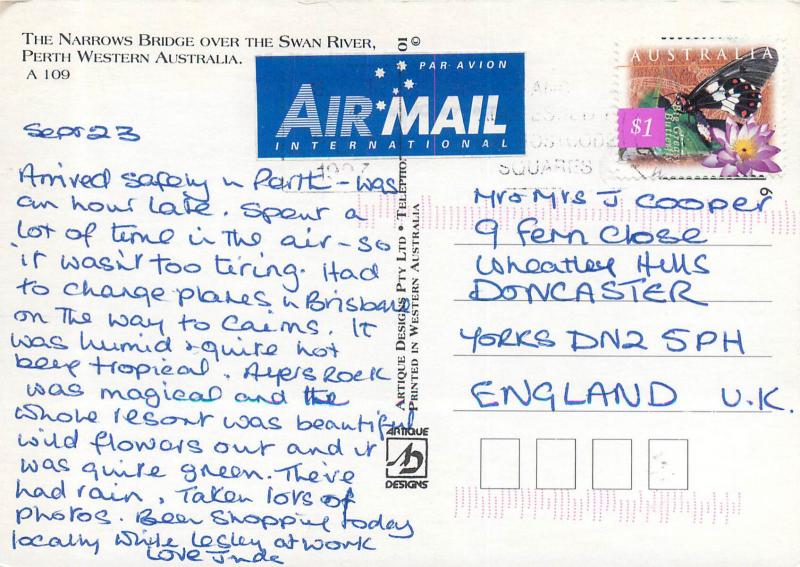 THE NARROWS BRIDGE OVER THE SWAN RIVER,
PERTH WESTERN AUSTRALIA.
A 109
PAR AVION
AIR MAIL
INTERNATIONAL
AUSTRALIA
$1
Big Greasy
Butterfly
POSTCODE
SQUARES
1997
Sept 23
Arrived safely in Perth - was
an hour late. Spent a
lot of time in the air - so
it wasn't too tiring. Had
to change planes in Brisbane
on the way to Cairns. It
was humid & quite hot
being tropical. Ayers Rock
was magical and the
whole resort was beautiful
wild flowers out and it
was quite green. They've
had rain. Taken lots of
photos. Been shopping today
locally while Lesley at work
Love
ARTIQUE DESIGNS PTY LTD • TELEPHO
PRINTED IN WESTERN AUSTRALIA
01 ©
ARTIQUE
DESIGNS
Mr & Mrs J Cooper
9 Fern Close
Wheatley Hills
DONCASTER
YORKS DN2 5PH
ENGLAND U.K.